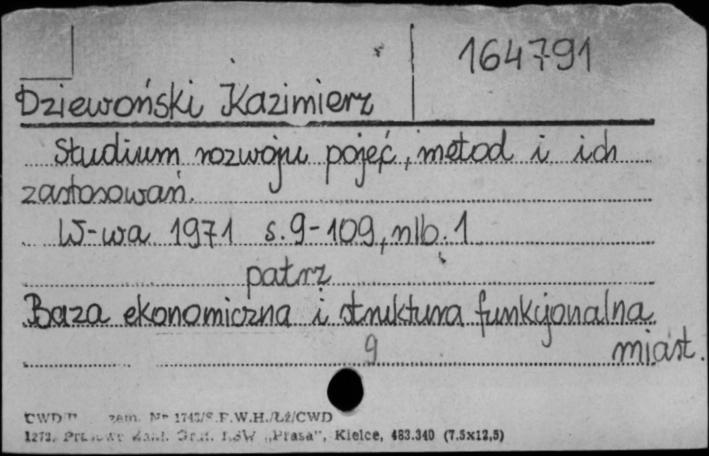 164791
Dziewoński Kazimierz
Studium rozwoju pojęć, metod i ich
zastosowań.
W-wa 1971 s. 9-109, nlb. 1
patrz
Baza ekonomiczna i struktura funkcjonalna
miast.
9
CWD zam. Nr F.W.H./Łź/CWD
"Prasa", Kielce, 483.340 (7,5x12,5)